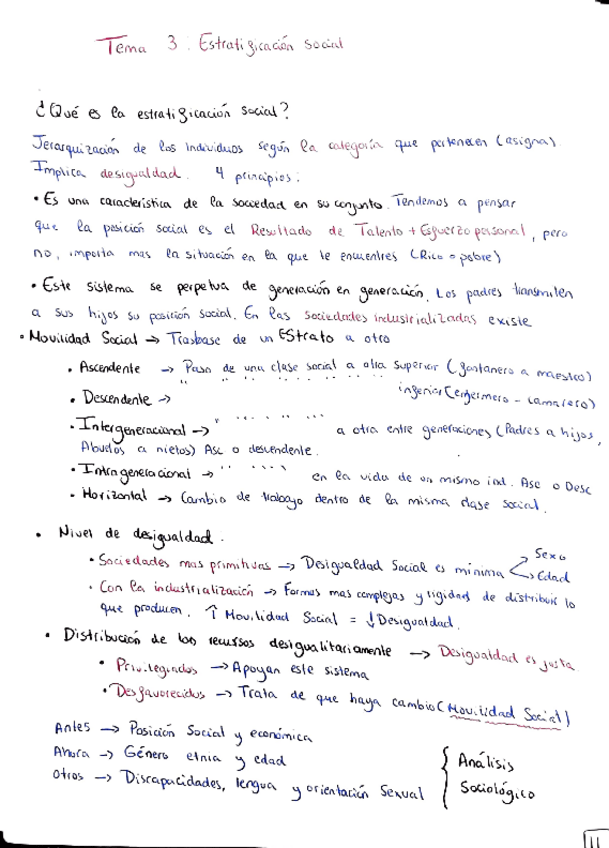 Tema 3: Estratificación social
¿Qué es la estratificación social?
Jerarquización de los individuos según la categoría que pertenecen (asigna).
Implica desigualdad. 4 principios:
• Es una característica de la sociedad en su conjunto. Tendemos a pensar
que la posición social es el Resultado de Talento + Esfuerzo personal, pero
no, importa mas la situación en la que te encuentres (Rico o pobre)
• Este sistema se perpetua de generación en generación. Los padres transmiten
a sus hijos su posición social. En las sociedades industrializadas existe
• Movilidad Social → Trasbase de un EStrato a otro
• Ascendente → Paso de una clase social a otra superior (fontanero a maestro)
• Descendente → " " " " " " " " inferior (enfermero - camarero)
• Intergeneracional → " " " " " a otra entre generaciones (Padres a hijos,
Abuelos a nietos) Asc o descendente.
• Intrageneracional → " " " " " en la vida de un mismo ind. Asc o Desc
• Horizontal → Cambio de trabajo dentro de la misma clase social.
• Nivel de desigualdad.
• Sociedades mas primitivas → Desigualdad Social es mínima Sexo
Edad
• Con la industrialización → Formas mas complejas y rigidas de distribuir lo
que producen. ↑ Movilidad Social = ↓ Desigualdad.
• Distribución de los recursos desigualitariamente → Desigualdad es justa
• Privilegiados → Apoyan este sistema
• Desfavorecidos → Trata de que haya cambio (Movilidad Social)
Antes → Posición Social y económica
Ahora → Género etnia y edad
Otros → Discapacidades, lengua y orientación Sexual
Análisis
Sociológico
11